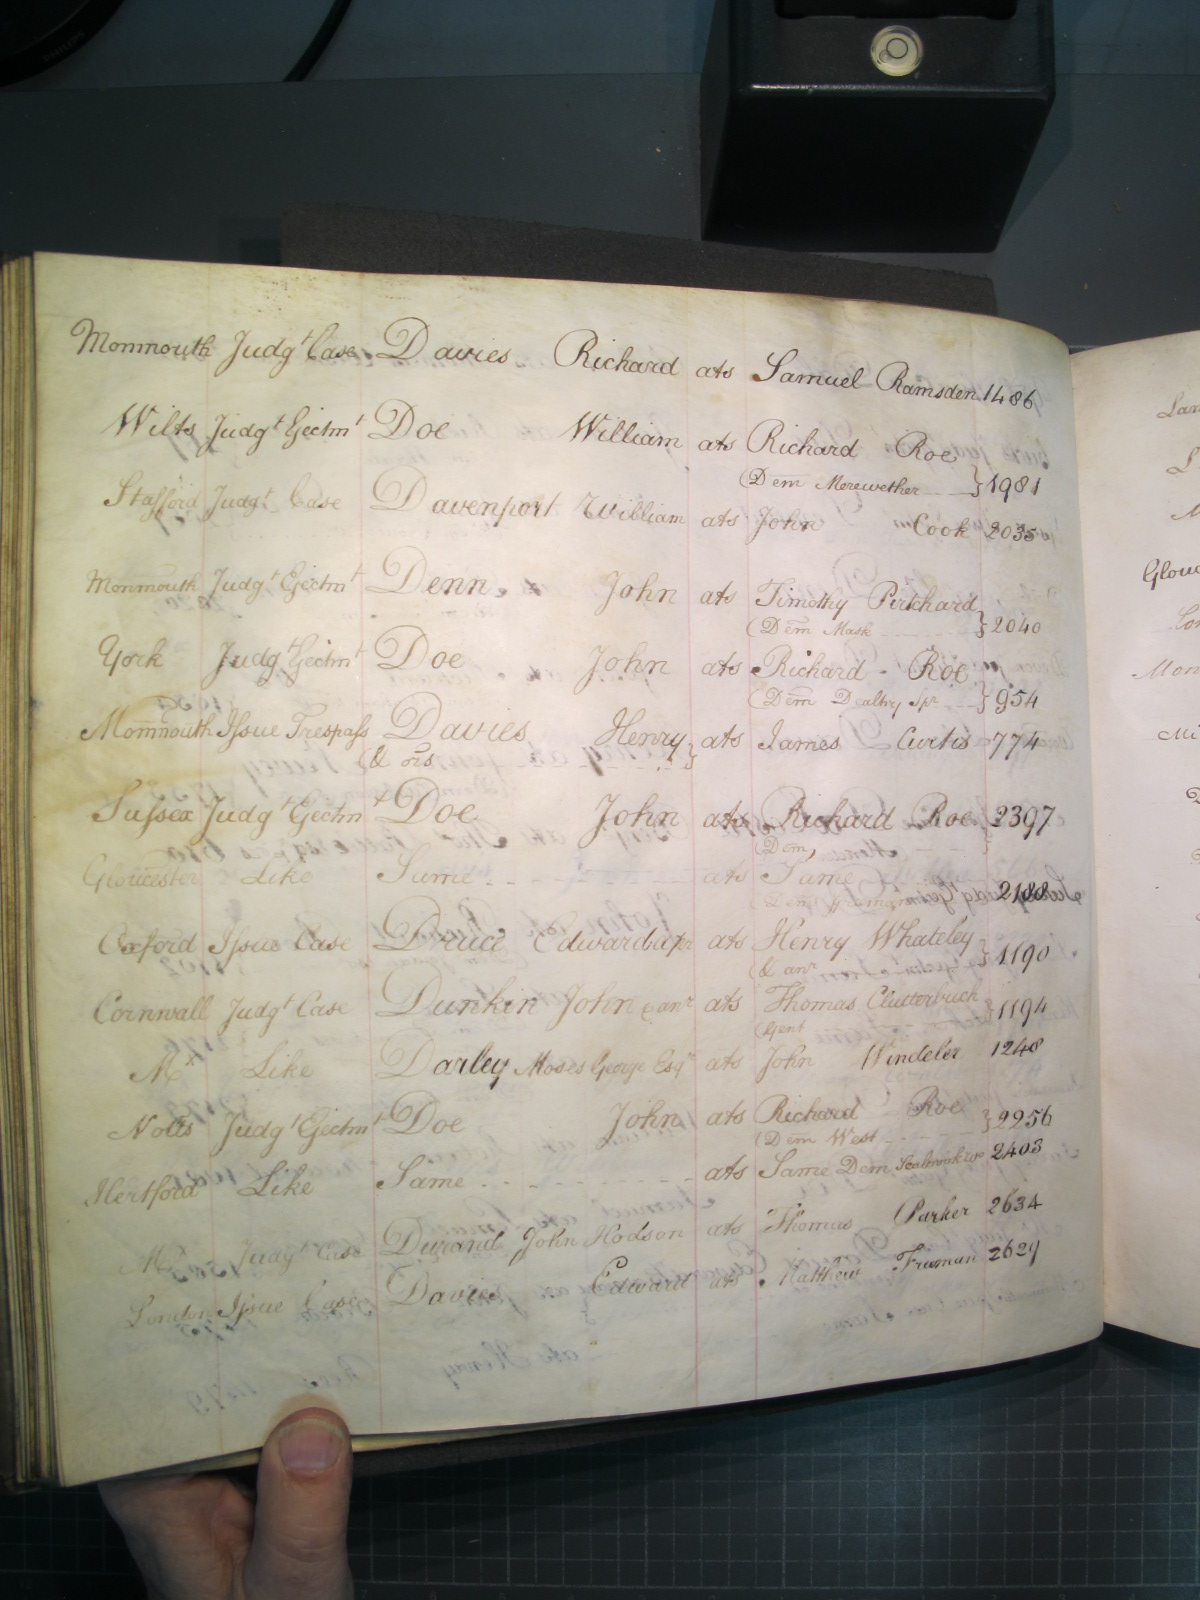 Monmouth Judgt Case Davies Richard ats Samuel Ramsden 1486
Wilts Judgt Ejectmt Doe William ats Richard Roe
(Dem Merewether } 1981
Stafford Judgt Case Davenport William ats John Cook 2035
Monmouth Judgt Ejectmt Denn John ats Timothy Pritchard
(Dem Mask } 2040
York Judgt Ejectmt Doe John ats Richard Roe
(Dem Dealtry } 954
Monmouth Issue Trespass Davies Henry } ats James Curtis 774
& ors
Sussex Judgt Ejectmt Doe John ats Richard Roe 2397
(Dem
Gloucester Like Same ats Same
(Dem 2188
Oxford Issue Case Edward ats Henry Whateley
(& anr } 1190
Cornwall Judgt Case Dunkin John & anr ats Thomas Clutterbuck
(Gent } 1194
Mx Like Darley Moses George Esqr ats John Windeler 1248
Notts Judgt Ejectmt Doe John ats Richard Roe
(Dem West } 2256
Hertford Like Same ats Same Dem 2403
Mx Judgt Case Durand John Hodson ats Thomas Parker 2634
London Issue Case Davies Edward ats Matthew Truman 2629
Glouc
Mon